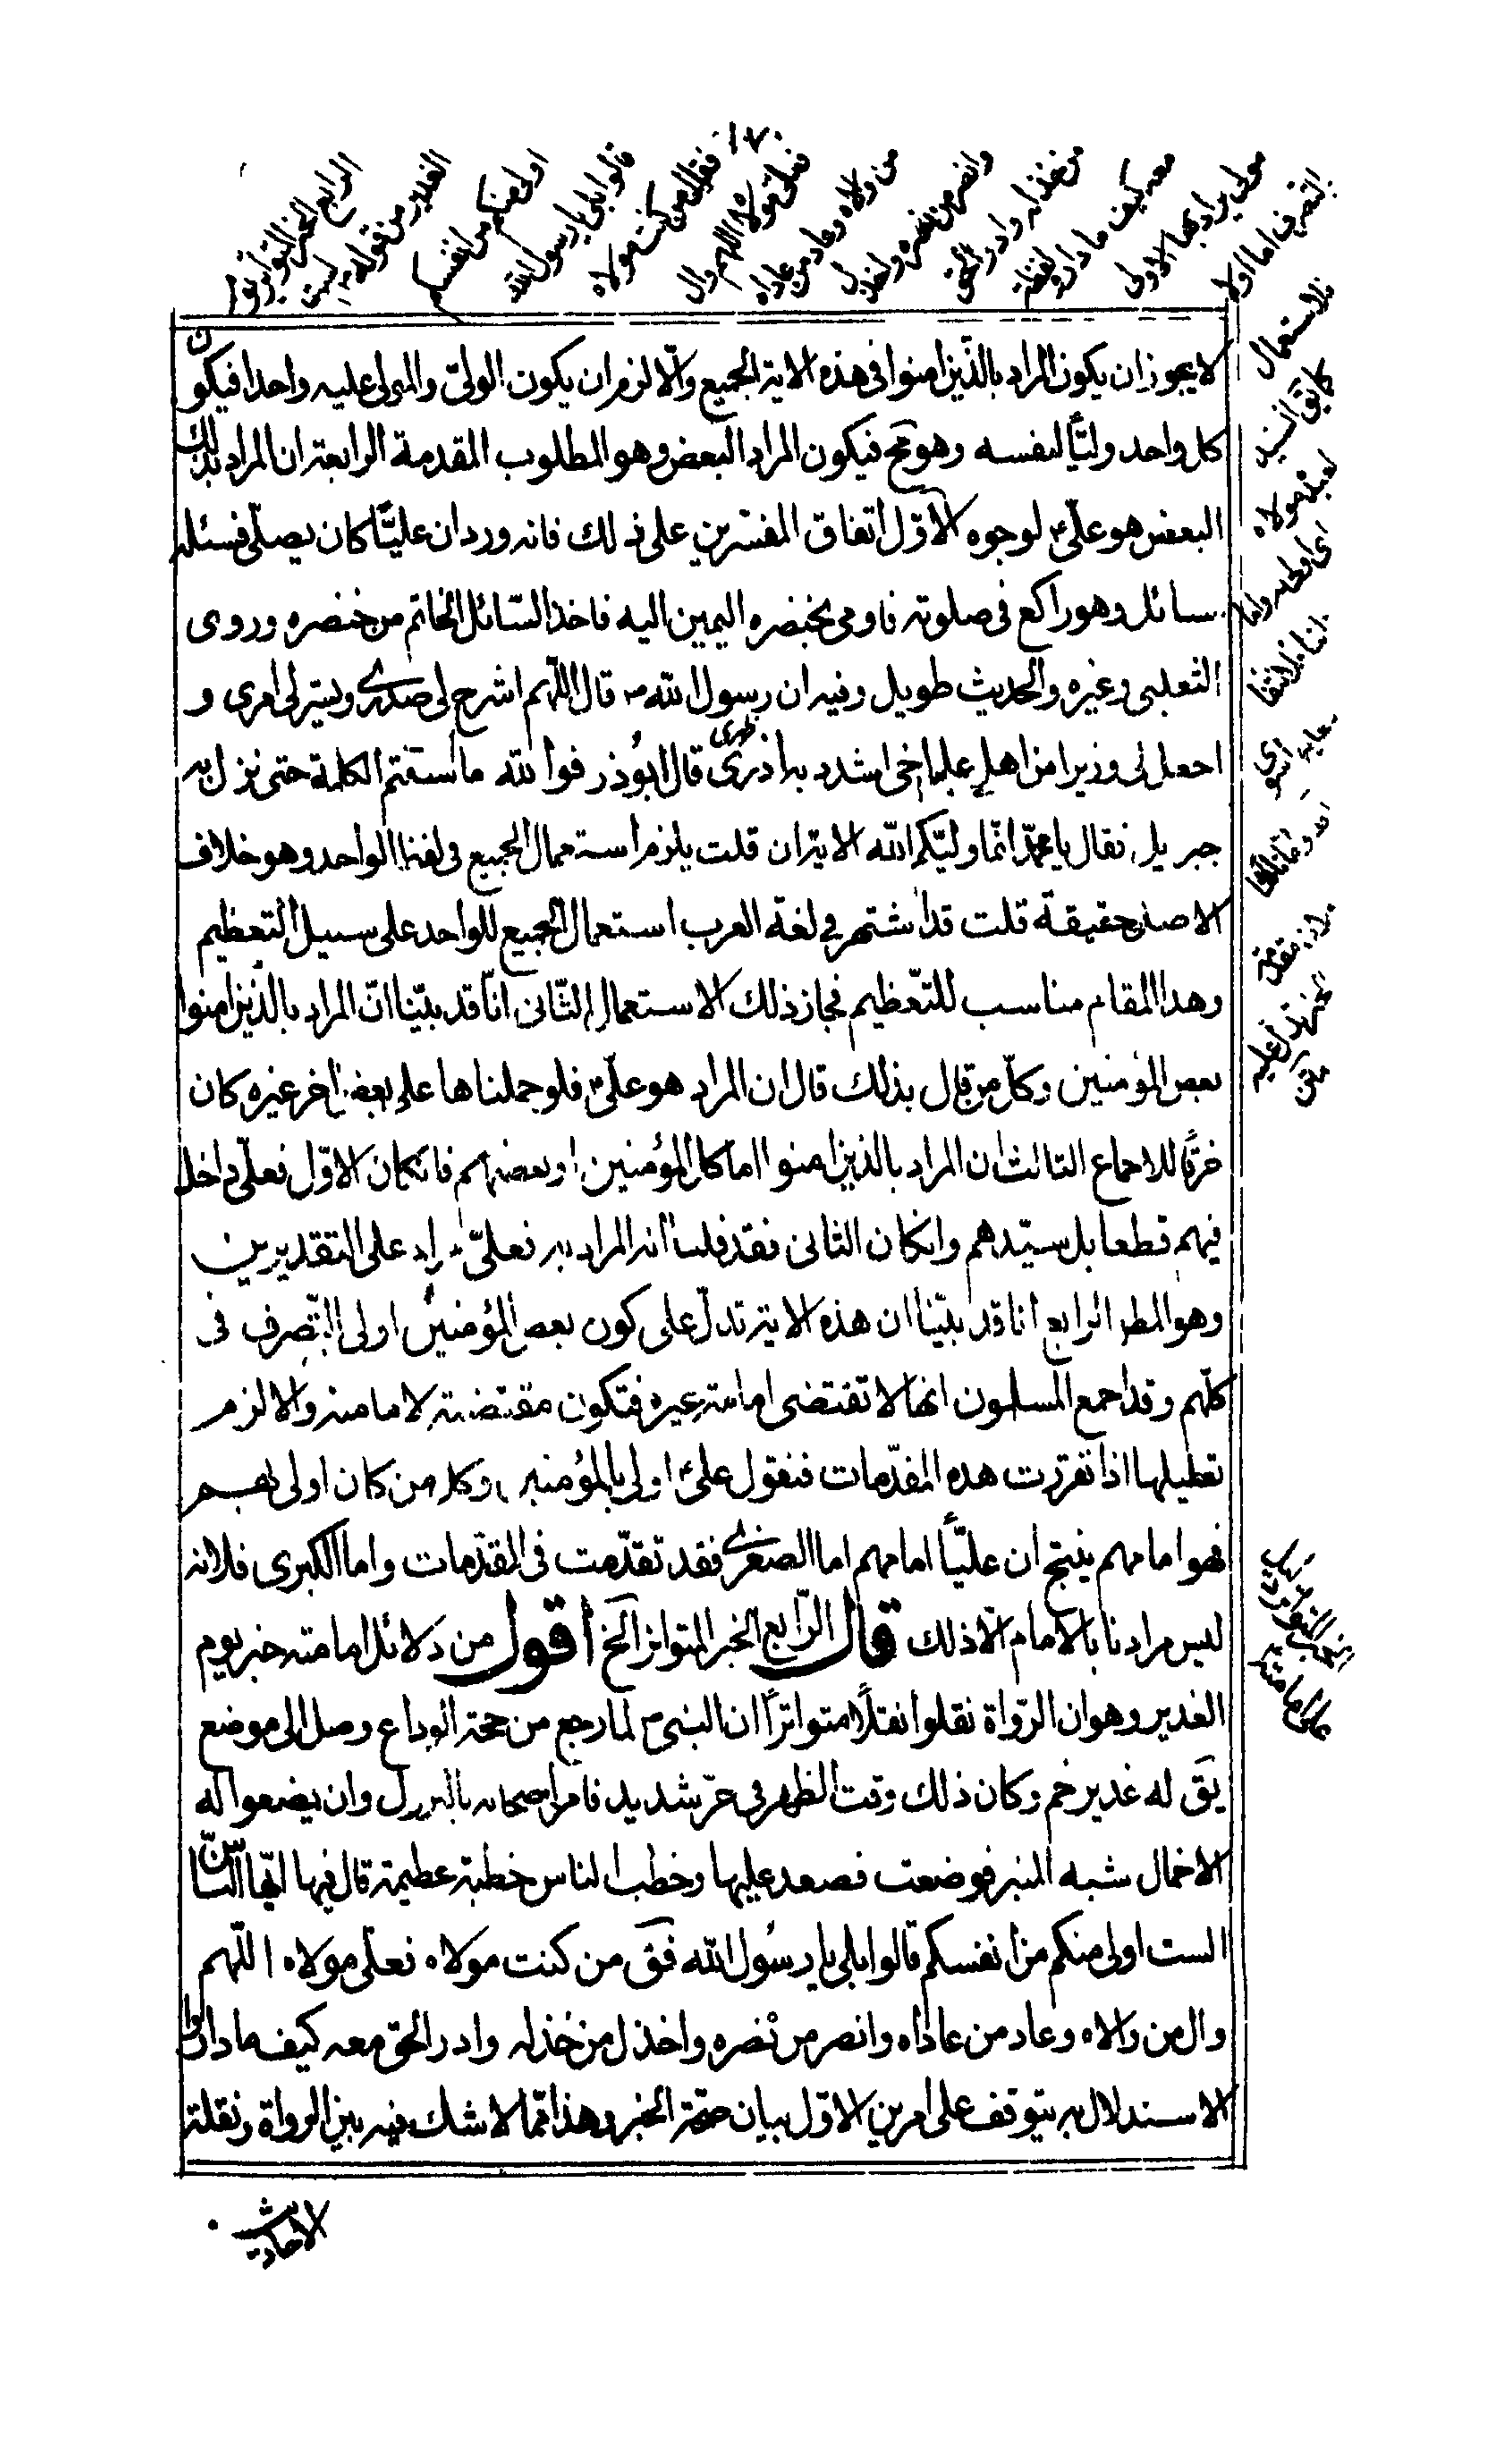 ١٧٠
الرابع الخبر المتواتر يوم
الغدير من قوله الست
اولى منكم من انفسكم
قالوا بلى يا رسول الله
فقال من كنت مولاه
فعلى مولاه اللهم وال
من والاه وعاد من عاداه
وانصر من نصره واخذل
من خذله وادر الحق
معه كيف ما دار
مولى يراد بها الاولى
بالتصرف اما اولا
فلاستعمال
كما يق السيد
العبد مولاه
لايجوز ان يكون المراد بالذين امنوا فى هذه الاية الجميع والا لزم ان يكون الولى والمولى عليه واحدا فيكون
كل واحد وليا لنفسه وهو مح فيكون المراد البعض وهو المطلوب المقدمة الرابعة ان المراد بذلك
البعض هو على لوجوه الاول اتفاق المفسرين على ذلك فانه ورد ان عليا كان يصلى فسئله
سائل وهو راكع فى صلوته فاومى بخنصره اليمين اليه فاخذ السائل الخاتم من خنصره وروى
الثعلبى وغيره والحديث طويل وفيه ان رسول الله ص قال اللهم اشرح لى صدرى ويسر لى امرى و
اجعل لى وزيرا من اهلى عليا اخى اشدد به ازرى ظهرى قال ابوذر فوالله ما استتم الكلمة حتى نزل به
جبريل فقال يا محمد انما وليكم الله الاية ان قلت يلزم استعمال الجميع فى لفظ الواحد وهو خلاف
الاصل حقيقة قلت قد اشتهر فى لغة العرب استعمال الجميع للواحد على سبيل التعظيم
وهذا المقام مناسب للتعظيم فجاز ذلك الاستعمال الثانى انا قد بينا ان المراد بالذين امنوا
بعض المؤمنين وكل من قال بذلك قال ان المراد هو على فلو حملناها على بعض اخر غيره كان
خرقا للاجماع الثالث ان المراد بالذين امنوا اما كل المؤمنين او بعضهم فانكان الاول فعلى داخل
فيهم قطعا بل سيدهم وانكان الثانى فقد قلنا انه المراد به فعلى مراد على التقديرين
وهو المط الرابع انا قد بينا ان هذه الاية تدل على كون بعض المؤمنين اولى بالتصرف فى
كلهم وقد اجمع المسلمون انها لا تقتضى امامة غيره فتكون مقتضية لامامته والا لزم
تعطيلها اذا تقررت هذه المقدمات فنقول على اولى بالمؤمنين وكل من كان اولى بهم
فهو امامهم ينتج ان عليا امامهم اما الصغرى فقد تقدمت فى المقدمات واما الكبرى فلانه
ليس مرادنا بالامام الا ذلك قال الرابع الخبر المتواتر الخ اقول من دلائل امامته خبر يوم
الغدير وهو ان الرواة نقلوا نقلا متواترا ان النبى ص لما رجع من حجة الوداع وصل الى موضع
يق له غدير خم وكان ذلك وقت الظهر فى حر شديد فامر اصحابه بالنزول وان يضعوا له
الاحمال شبه المنبر فوضعت فصعد عليها وخطب الناس خطبة عظيمة قال فيها ايها الناس
الست اولى منكم من انفسكم قالوا بلى يا رسول الله فق من كنت مولاه فعلى مولاه اللهم
وال من والاه وعاد من عاداه وانصر من نصره واخذل من خذله وادر الحق معه كيف ما دار و
الاستدلال به يتوقف على امرين الاول بيان صحة الخبر وهذا مما لا شك فيه بين الرواة ونقلة
الاحاديث